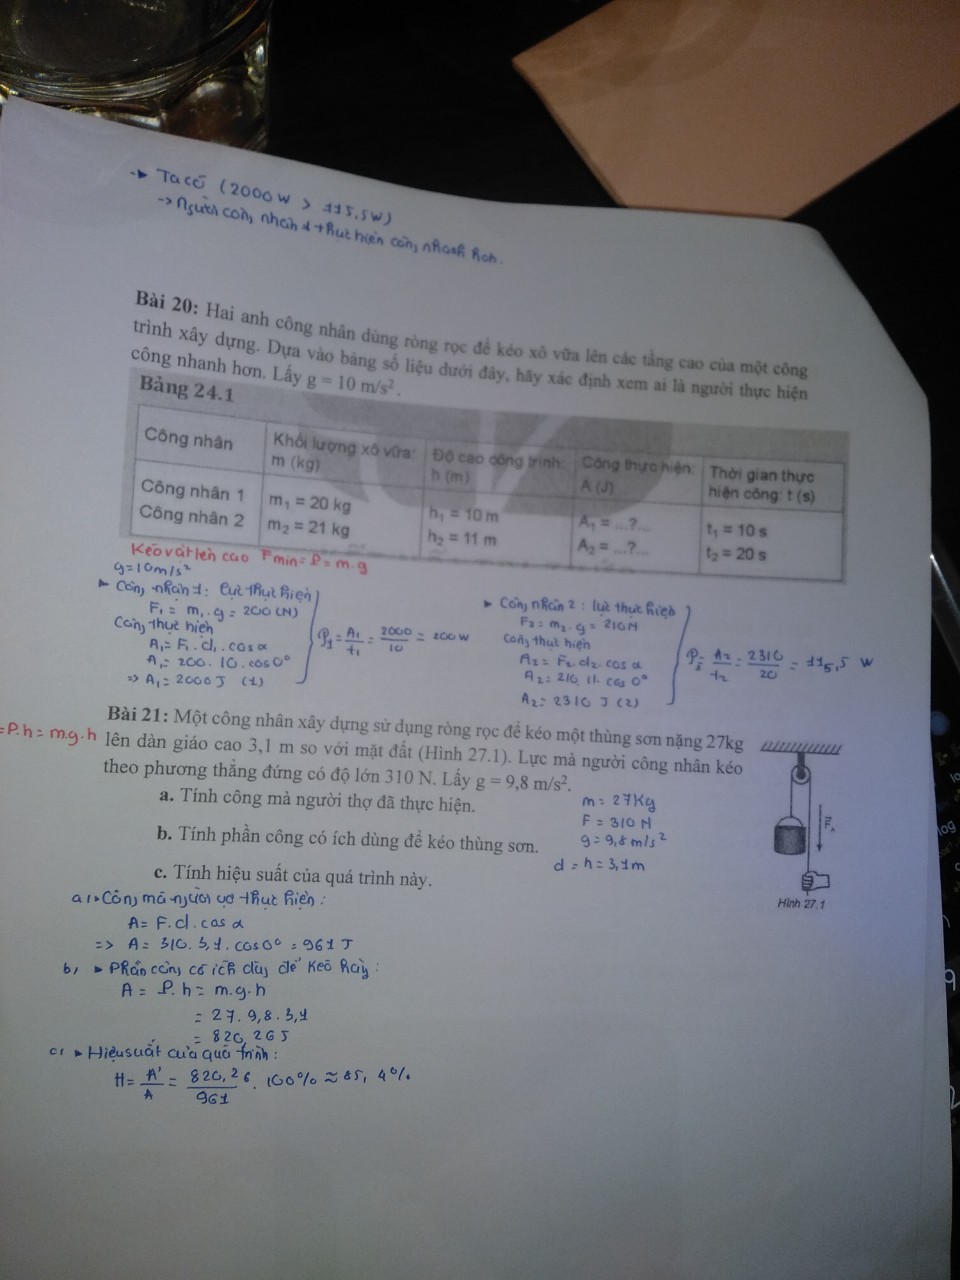 -> Ta có (2000W > 115,5W)
-> Người công nhân 1 thực hiện công nhanh hơn.
Bài 20: Hai anh công nhân dùng ròng rọc để kéo xô vữa lên các tầng cao của một công
trình xây dựng. Dựa vào bảng số liệu dưới đây, hãy xác định xem ai là người thực hiện
công nhanh hơn. Lấy g = 10 m/s².
Bảng 24.1
Công nhân | Khối lượng xô vữa: m (kg) | Độ cao công trình: h (m) | Công thực hiện: A (J) | Thời gian thực hiện công: t (s)
Công nhân 1 | m₁ = 20 kg | h₁ = 10 m | A₁ = ...?... | t₁ = 10 s
Công nhân 2 | m₂ = 21 kg | h₂ = 11 m | A₂ = ...?... | t₂ = 20 s
Kéo vật lên cao Fmin = P = m.g
g = 10m/s²
Công nhân 1: Lực thực hiện
F₁ = m₁.g = 200(N)
Công thực hiện
A₁ = F₁.d₁.cosα
A₁ = 200.10.cos0°
=> A₁ = 2000J (1)
P₁ = A₁/t₁ = 2000/10 = 200W
Công nhân 2: lực thực hiện
F₂ = m₂.g = 210N
Công thực hiện
A₂ = F₂.d₂.cosα
A₂ = 210.11.cos0°
A₂ = 2310 J (2)
= A₂/t₂ = 2310/20 = 115,5 W
Bài 21: Một công nhân xây dựng sử dụng ròng rọc để kéo một thùng sơn nặng 27kg
= P.h = m.g.h
lên dàn giáo cao 3,1 m so với mặt đất (Hình 27.1). Lực mà người công nhân kéo
theo phương thẳng đứng có độ lớn 310 N. Lấy g = 9,8 m/s².
a. Tính công mà người thợ đã thực hiện.
b. Tính phần công có ích dùng để kéo thùng sơn.
c. Tính hiệu suất của quá trình này.
m = 27kg
F = 310 N
g = 9,8 m/s²
d = h = 3,1m
Hình 27.1
a, Công mà người thực hiện:
A = F.d.cosα
=> A = 310.3,1.cos0° = 961 J
b, Phần công có ích dùng để kéo
A = P.h = m.g.h
= 27.9,8.3,1
= 820,26J
c, Hiệu suất của quá trình:
H = A'/A = 820,26/961 . 100% ≈ 85,4%